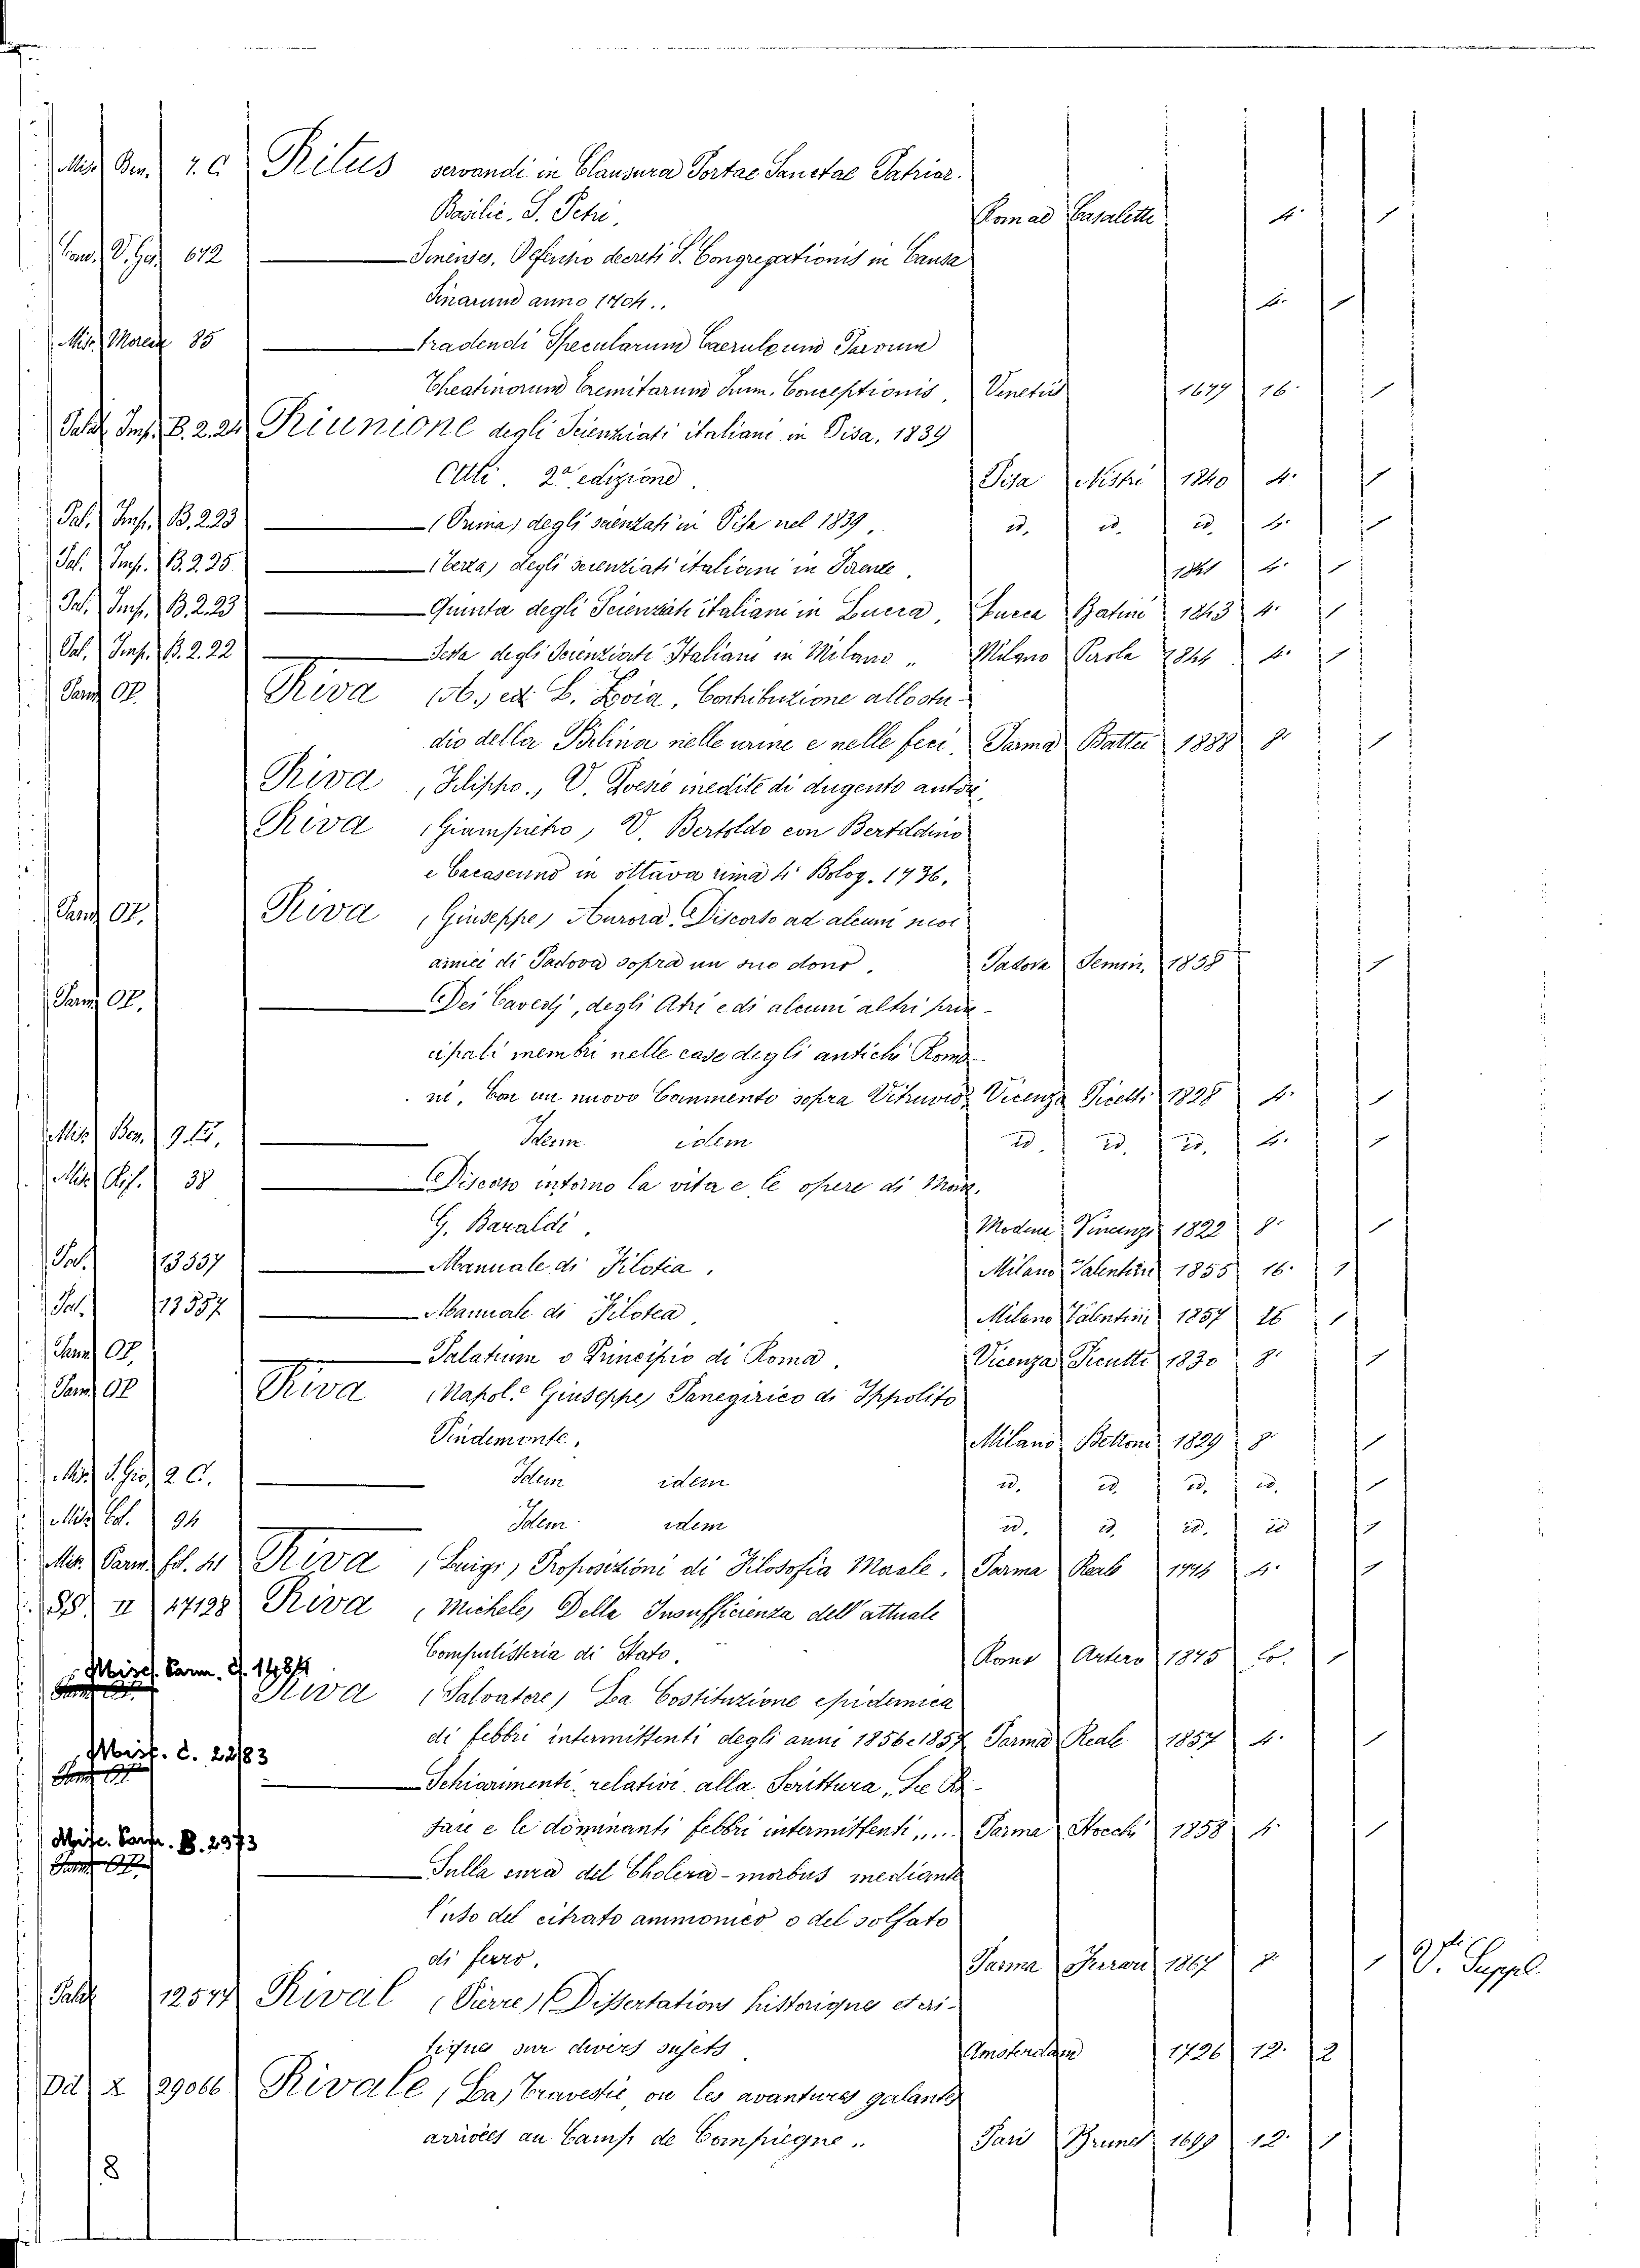 Misc. Ben. 7. C Ritus servandi in Clausura Portae Sanctae Patriar.
Basilic. S. Petri. Rom ae Casaletti 4. 1
Conv. V. Ges. 672 Sinenses, Defensio decreti S. Congregationis in Causa
Sinarum anno 1704. 1
Misc. Moren 85 tradendi Specularum Caeruleum Parvum
Theatinorum Eremitarum Imm. Conceptionis. Venetiis 1677 16. 1
Palat. Imp. B. 2. 24 Riunione degli Scienziati italiani in Pisa, 1839
Atti. 2ª edizione. Pisa Nistri 1840 4. 1
Pal. Imp. B. 2 23 (Prima) degli scienziati in Pisa nel 1839. id. id. id. 4. 1
Pal. Imp. B. 2. 25 (Terza) degli scienziati italiani in Firenze. 1841 4. 1
Pal. Imp. B. 2. 23 Quinta degli Scienziati italiani in Lucca, Lucca Batini 1843 4. 1
Pal. Imp. B. 2. 22 Sesta degli Scienziati Italiani in Milano „ Milano Pirola 1844 4. 1
Parm OP. Riva ed L. Zoia, Contribuzione allo stu-
dio della Bilina nelle urine e nelle feci. Parma Battei 1888 8. 1
Riva (Filippo), V. Poesie inedite di dugento autori.
Riva (Giampietro), V. Bertoldo con Bertoldino
e Cacasenno in ottava rima 4. Bolog. 1736.
Parm OP. Riva (Giuseppe) Aurora. Discorso ad alcuni suoi
amici di Padova sopra un suo dono. Padova Semin. 1838 1
Parm OP. Dei Cavedj, degli Atri e di alcuni altri prin-
cipali membri nelle case degli antichi Roma-
ni. Con un nuovo Commento sopra Vitruvio, Vicenza Picutti 1828 4. 1
Misc. Ben. 9. Idem idem id. id. id. 4. 1
Misc. Rif. 38 Discorso intorno la vita e le opere di Mons.
G. Baraldi. Modena Vincenzi 1822 8. 1
Pal. 13537 Manuale di Filotea. Milano Valentini 1855 16. 1
Pal. 13557 Manuale di Filotea. Milano Valentini 1857 16 1
Parm OP. Palatium o Principio di Roma. Vicenza Picutti 1830 8. 1
Parm OP Riva (Napol.e Giuseppe) Panegirico di Ippolito
Pindemonte. Milano Bettoni 1829 8 1
Mis. S. Gio. 2 C. Idem idem id. id. id. id. 1
Mis. Col. 94 Idem idem id. id. id. id 1
Mis. Parm fol. 41 Riva (Luigi) Proposizioni di Filosofia Morale. Parma Reale 4. 1
SS. II 17198 Riva (Michele) Della Insufficienza dell'attuale
Computisteria di Stato. Roma Artero 1875 fo. 1
Misc. Parm. C. 1484
Parm OP. Riva (Salvatore) La Costituzione epidemica
di febbri intermittenti degli anni 1856e1857 Parma Reale 1857 4. 1
Misc. C. 2283
Parm OP Schiarimenti relativi alla Scrittura „Le
e le dominanti febbri intermittenti „... Parma Stocchi 1858 4. 1
Misc. Parm. B. 2973
Parm OP. Sulla cura del Cholera-morbus mediante
l'uso del citrato ammonico o del solfato
di ferro. Parma Ferrari 1867 8. 1 Vdi Suppl.
Palat 12577 Rival (Pierre) Dissertations historiques et cri-
tiques sur divers sujets. Amsterdam 1726 12. 2
Dd X 29066 Rivale (La) Travestie, ou les avantures galantes
arrivées au Camp de Compiegne. Paris Brunet 1699 12. 1
8